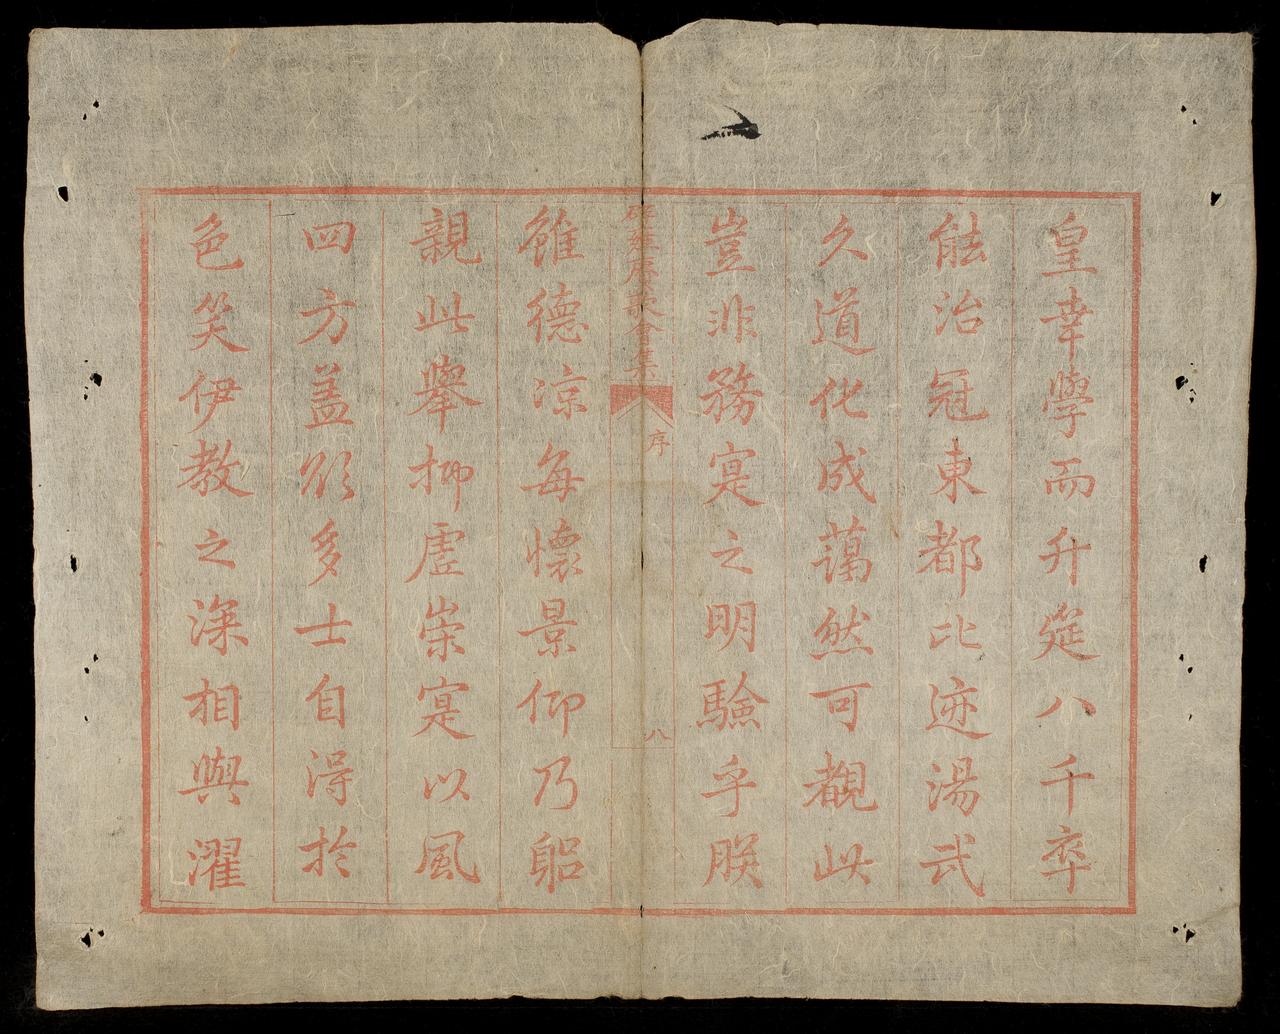 皇幸學而升筵八千卒
能治冠東都比迹湯武
久道化成藹然可覩此
豈非務寔之明驗乎朕
經賡歌會集
序
八
雖德涼每懷景仰乃躬
親此舉抑虛崇寔以風
四方盖欲多士自得於
色笑伊教之深相與濯